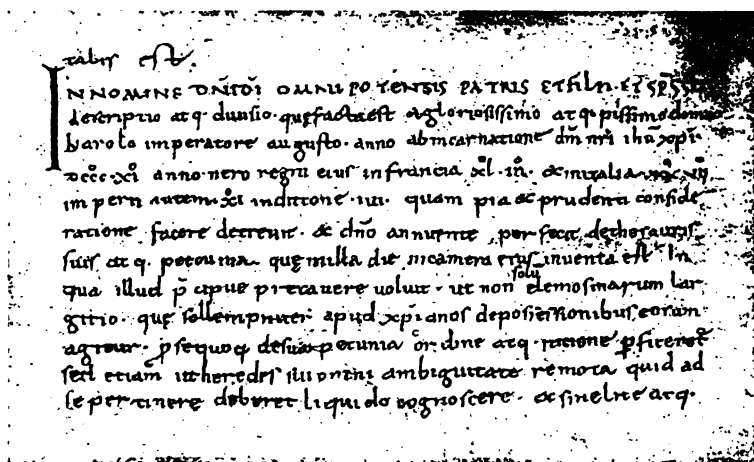 talis est.
IN NOMINE DNI DI OMNIPOTENTIS PATRIS ET FILII. ET SPS SCI
descriptio atq. diuisio. quę facta est a gloriosissimo atq. piissimo domno
karolo imperatore augusto. anno ab incarnatione dni nri ihu xpi.
dccc. xi anno uero regni eius in francia xl. iii. & in italia
imperii autem. xi indictione. iiii. quam pia & prudenti conside
ratione facere decreuit. & dno annuente perfecit de thesauris
suis atq. pecunia. quę in illa die in camera eius inuenta est. In
qua illud p cipue precauere uoluit. ut non solu elemosinarum lar
gitio. quę sollempniter apud xpianos de possessionibus eorum
agitur. p se quoq. de sua pecunia ordine atq. ratione pficeret
sed etiam ut heredes sui omni ambiguitate remota quid ad
se pertinere deberet liquido cognoscere. & sine lite atq.